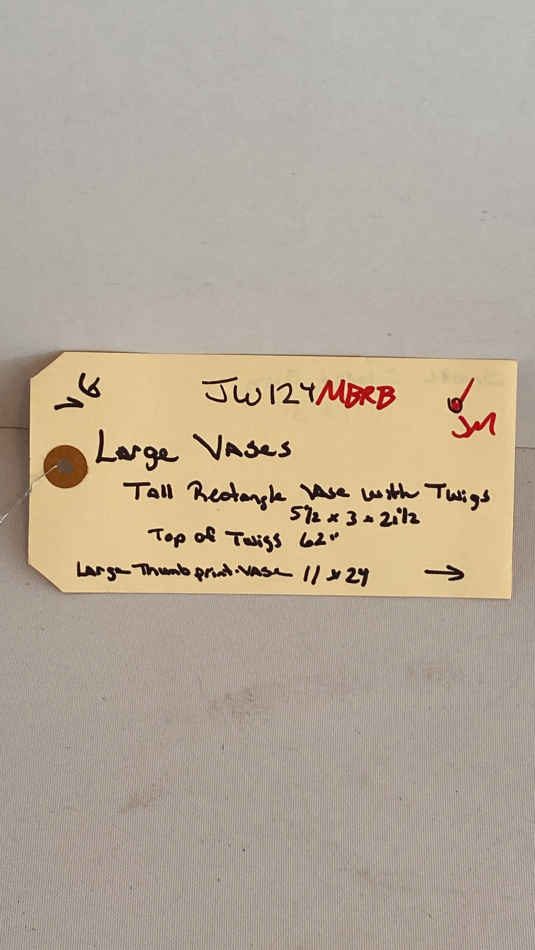 JW124MBRB
JM
Large Vases
Tall Rectangle Vase with Twigs
5½ x 3 x 21½
Top of Twigs 62"
Large Thumb print Vase 11 x 24 →